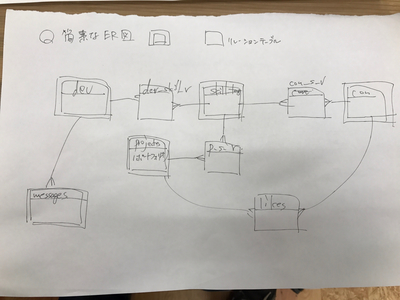 簡素なER図 リレーションテーブル
dev
dev_skill_v
skill_tag
com_s_v
com
projects
p_s_v
messages
likes